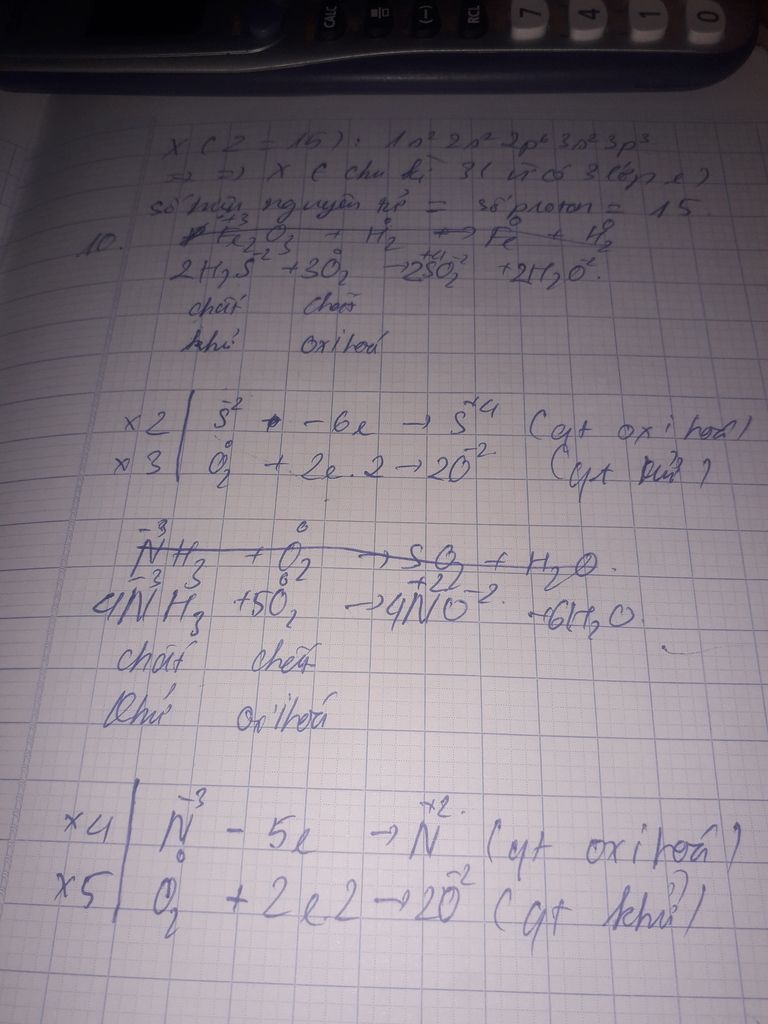 CALC (-) RCL 7 4 1 0
X (Z = 15): 1s² 2s² 2p⁶ 3s² 3p³
=> => X ∈ chu kì 3 (vì có 3 lớp e)
số hiệu nguyên tử = số proton = 15.
10. Fe₂⁺³O₃ + H₂⁰ → Fe⁰ + H₂
2H₂S⁻² + 3O₂⁰ → 2S⁺⁴O₂⁻² + 2H₂O⁻².
chất chất
khử oxi hoá
x2 | S⁻² - 6e → S⁺⁴ (qt oxi hoá)
x3 | O₂⁰ + 2e.2 → 2O⁻² (qt khử)
N⁻³H₃ + O₂⁰ → SO₂ + H₂O.
4N⁻³H₃ + 5O₂⁰ → 4N⁺²O⁻² + 6H₂O.
chất chất
khử oxi hoá
x4 | N⁻³ - 5e → N⁺² (qt oxi hoá)
x5 | O₂⁰ + 2e2 → 2O⁻² (qt khử)